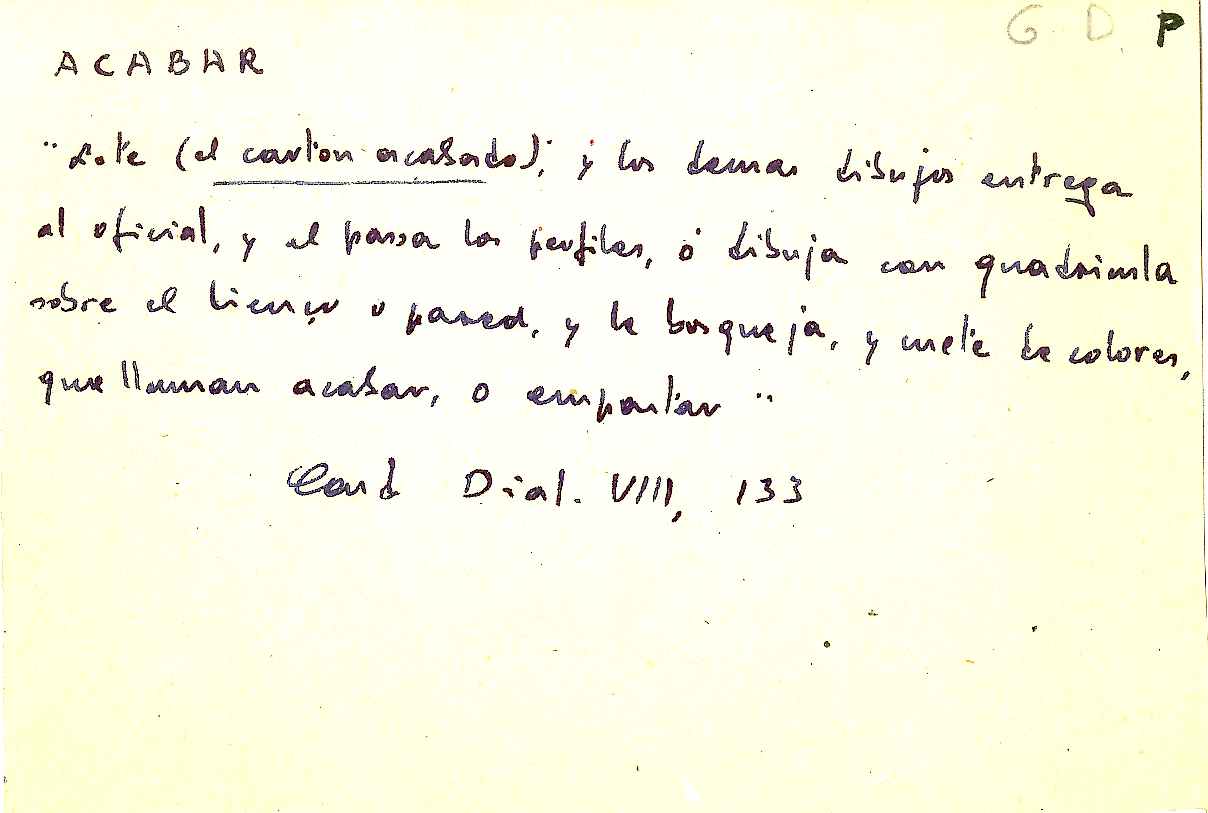 G D P
ACABAR
"Este (el carton acabado), y los demas dibujos entrega
al oficial, y el passa los perfiles, ó dibuja con quadricula
sobre el lienço o pared, y le bosqueja, y mete de colores,
que llaman acabar, o empastar"
Card Dial. VIII, 133